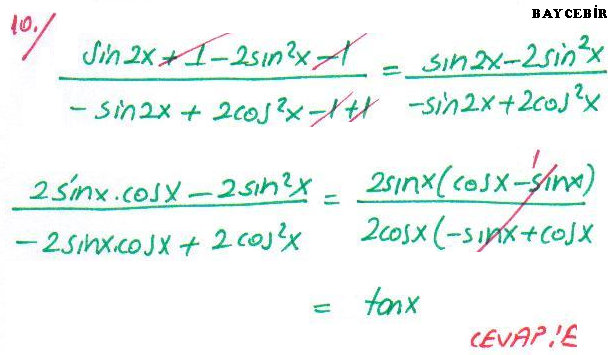 BAYCEBİR
10./
sin2x + 1 - 2sin²x - 1 / - sin2x + 2cos²x - 1 + 1 = sin2x - 2sin²x / -sin2x + 2cos²x
2sinx.cosx - 2sin²x / -2sinx.cosx + 2cos²x = 2sinx(cosx - sinx) / 2cosx(-sinx + cosx
1
= tanx
CEVAP:E